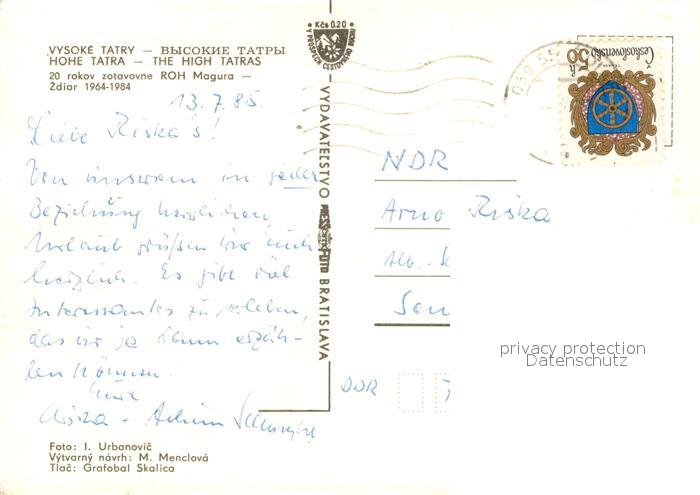 VYSOKÉ TATRY — ВЫСОКИЕ ТАТРЫ
HOHE TATRA — THE HIGH TATRAS
20 rokov zotavovne ROH Magura —
Ždiar 1964-1984
13.7.85.
Liebe Riska's!
Von unserem in jeder
Beziehung herrlichen
Urlaub grüßen wir Euch
herzlich. Es gibt viel
Interessantes zu erleben,
das wir ja dann erzäh-
len können.
Eure
+ Achim
Foto: I. Urbanovič
Výtvarný návrh: M. Menclová
Tlač: Grafobal Skalica
Kčs 0.20
V PROSPECH CESTOVNÉHO RUCHU
VYDAVATEĽSTVO
BRATISLAVA
Československo
50 h
NDR
Arno Riska
DDR 7
privacy protection
Datenschutz